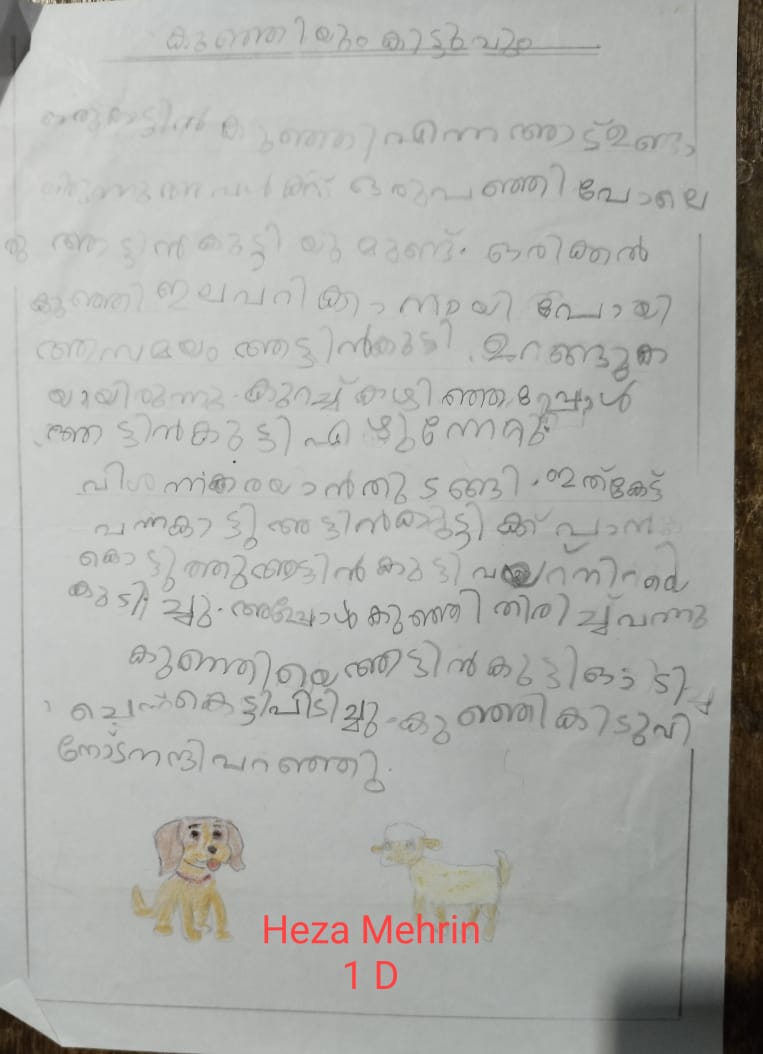 കുഞ്ഞിയും കിട്ടുവും
കുഞ്ഞി എന്ന ആട് ഉണ്ടാ
ഒരു പഞ്ഞി പോലെ
ആട്ടിൻകുട്ടി യുമുണ്ട്. ഒരിക്കൽ
കുഞ്ഞി ഇലപറിക്കാനായി പോയി
ആസമയം ആട്ടിൻകുട്ടി ഉറങ്ങുക
യായിരുന്നു. കുറച്ച് കഴിഞ്ഞപ്പോൾ
ആട്ടിൻകുട്ടി എഴുന്നേറ്റു
വിശന്ന്കരയാൻതുടങ്ങി. ഇത്കേട്ട്
വന്നകിട്ടു ആട്ടിൻകുട്ടിക്ക് പാൽ
കൊടുത്തു ആട്ടിൻകുട്ടി വയറ്നിറയെ
കുടിച്ചു. അപ്പോൾ കുഞ്ഞി തിരിച്ച് വന്നു
കുഞ്ഞിയെ ആട്ടിൻകുട്ടി ഓടി
ചെന്ന്കെട്ടിപിടിച്ചു. കുഞ്ഞി കിടുവി
നോട്നന്ദിപറഞ്ഞു.
Heza Mehrin
1 D